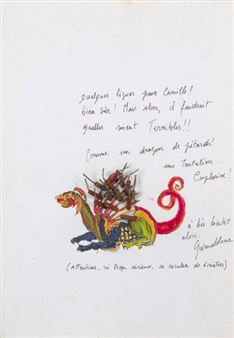 Quelques lignes pour Camille!
bien sûr! Mais alors, il faudrait
qu'elles soient Terribles!!
Comme un dragon de pétards!
une Tentation...
Explosive!
à très bientôt
alors,
Gwendoline
(Attention, si trop sérieux, se reculer de 6 mètres)